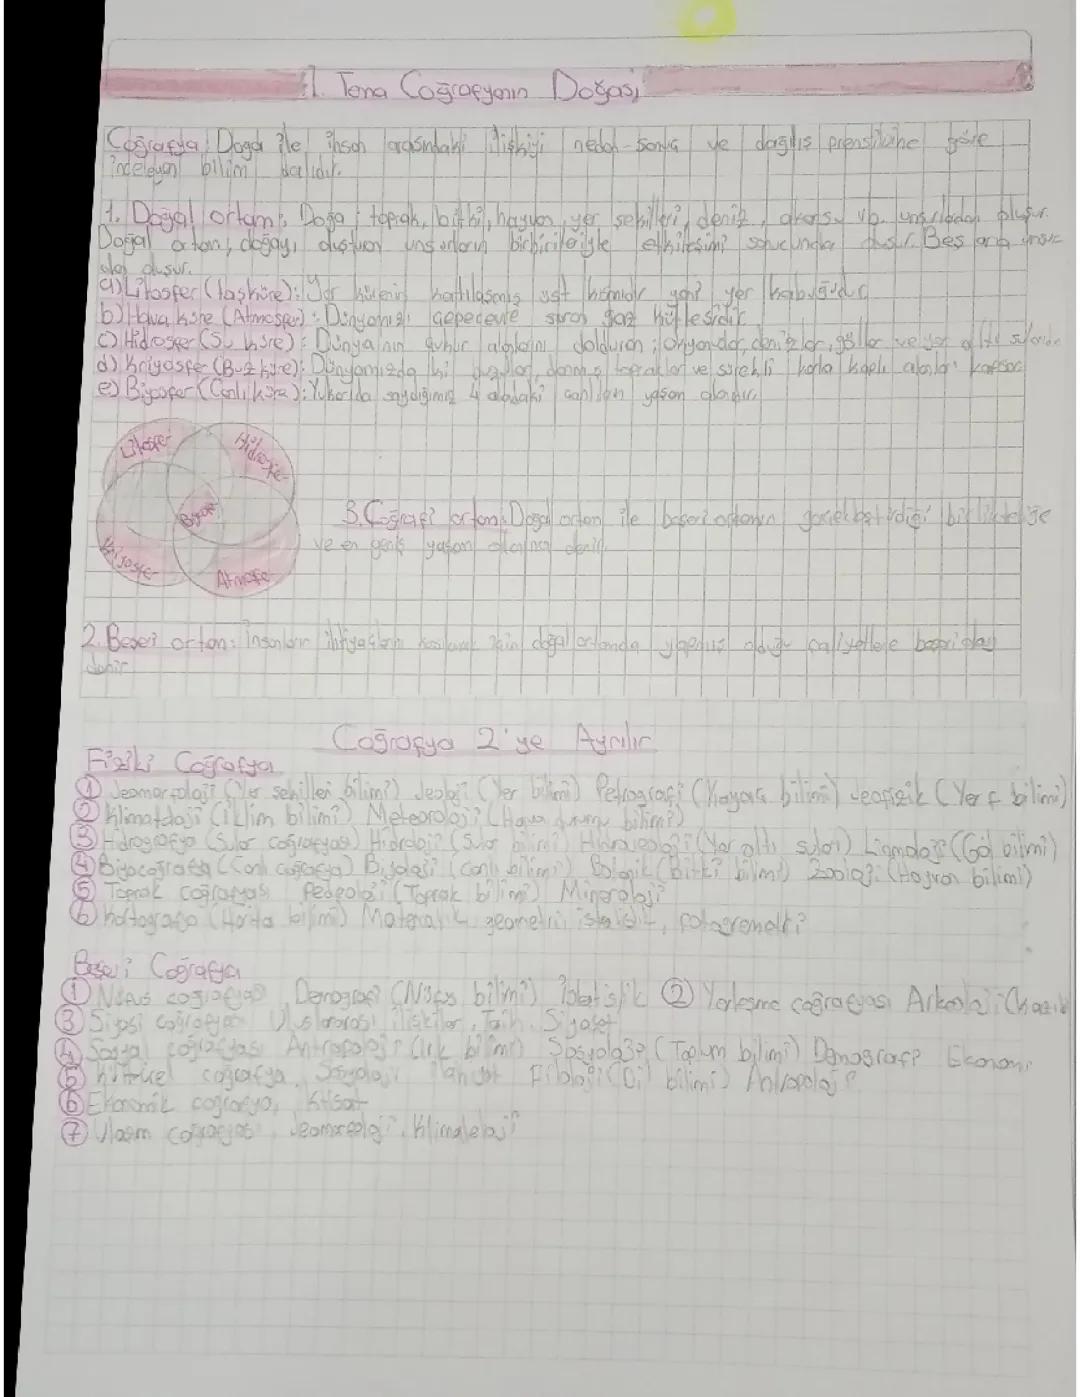 1. Tema Coğrafyanın Doğası
Coğrafya: Doğa ile insan arasındaki ilişkiyi neden-sonuç ve dağılış prensibine göre
inceleyen bilim dalıdır.
1. Doğal ortam: Doğa; toprak, bitki, hayvan, yer şekilleri, deniz, akarsu vb. unsurlardan oluşur.
Doğal ortam, doğayı oluşturan unsurların birbirleriyle etkileşimi sonucunda oluşur. Beş ana unsur
oluşur.
a) Litosfer (taşküre): Yer kürenin katılaşmış üst kısmıdır yani yer kabuğudur.
b) Hava küre (Atmosfer): Dünyamızı çepeçevre saran gaz kütlesidir.
c) Hidrosfer (Su küre): Dünya'nın çukur alanlarını dolduran; okyanuslar, denizler, göller ve yer altı sularıdır
d) Kriyosfer (Buz küre): Dünyamızda ki buzullar, donmuş topraklar ve sürekli karla kaplı alanları kapsar.
e) Biyosfer (Canlı küre): Yukarıda saydığımız 4 alandaki canlıların yaşam alanıdır.
Litosfer Hidrosfer
Biyosfer
Kriyosfer Atmosfer
3. Coğrafi ortam: Doğal ortam ile beşeri ortamın gerçekleştirdiği birlikteliğe
ve en geniş yaşam alanına denir.
2. Beşeri ortam: İnsanların ihtiyaçlarını karşılamak için doğal ortamda yapmış olduğu faaliyetlere beşeri olay
denir
Coğrafya 2'ye Ayrılır
Fiziki Coğrafya
① Jeomorfoloji (Yer şekilleri bilimi) Jeoloji (Yer bilimi) Petrografi (Kayaç bilimi) Jeofizik (Yer f bilimi)
② Klimatoloji (İklim bilimi) Meteoroloji (Hava durumu bilimi)
③ Hidrografya (Sular coğrafyası) Hidroloji (Sular bilimi) Hidrojeoloji (Yer altı suları) Limnoloji (Göl bilimi)
④ Biyocoğrafya (Canlı coğrafya) Biyoloji (canlı bilimi) Botanik (Bitki bilimi) Zooloji (Hayvan bilimi)
⑤ Toprak coğrafyası Pedoloji (Toprak bilimi) Mineroloji
⑥ Kartografya (Harita bilimi) Matematik, geometri, istatistik, fotogrametri
Beşeri Coğrafya
① Nüfus coğrafyası Demografi (Nüfus bilimi) İstatistik ② Yerleşme coğrafyası Arkeoloji (Kazı
③ Siyasi coğrafya Uluslararası ilişkiler, Tarih, Siyaset
④ Sosyal coğrafyası Antropoloji (Irk bilimi) Sosyoloji (Toplum bilimi) Demografi Ekonomi
⑤ Kültürel coğrafya, Sosyoloji Filoloji (Dil bilimi) Antropoloji
⑥ Ekonomik coğrafya, İktisat
⑦ Ulaşım coğrafyası, Jeomorfoloji, Klimatoloji